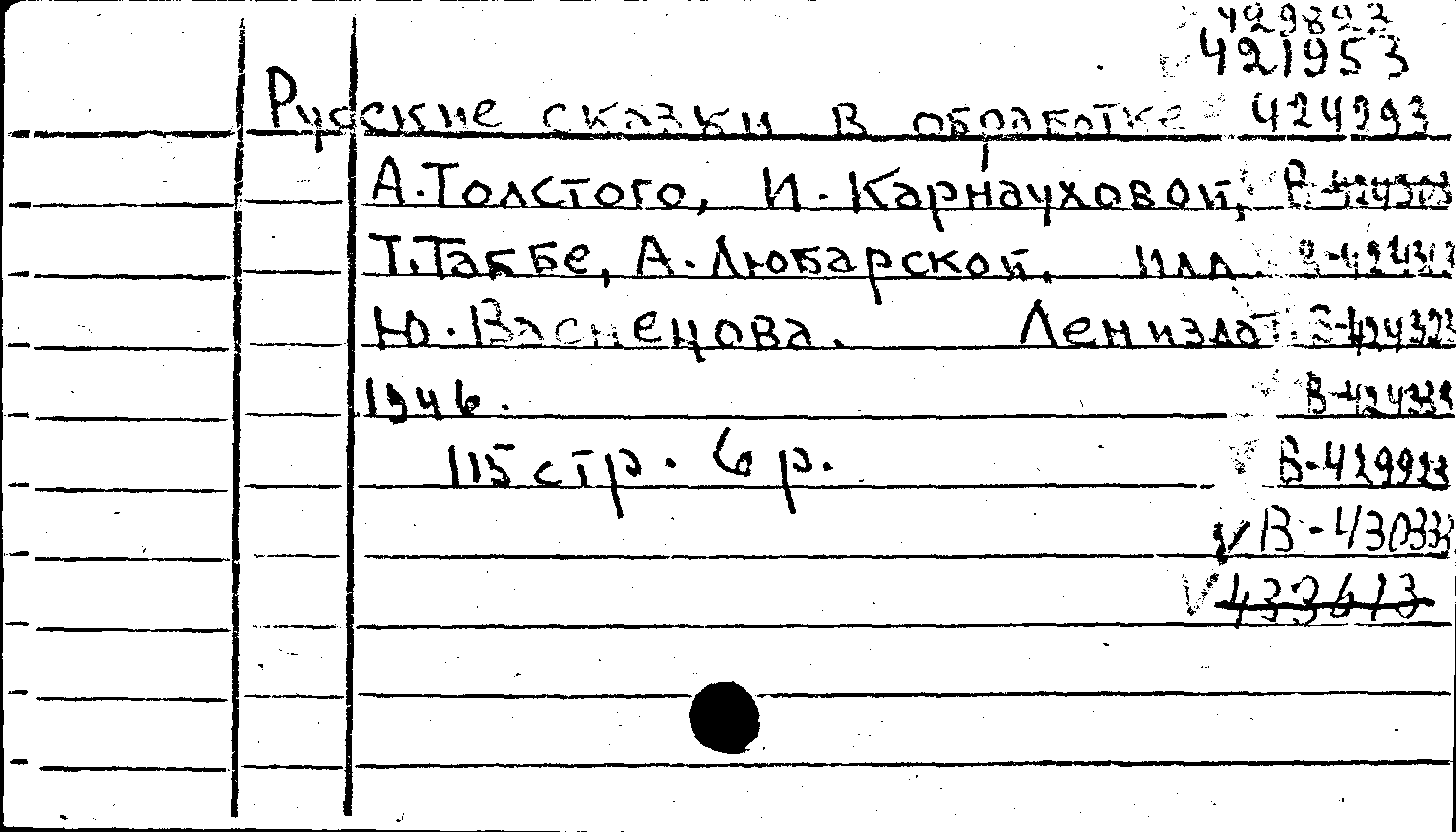 429823
421953
Русские сказки в обработке 424993
А.Толстого, И.Карнауховой,
Т.Габбе, А.Любарской. Илл.
Ю.Васнецова. Лениздат В-424323
1946. В-424339
115 стр. 6 р. В-429923
В-430333
433613